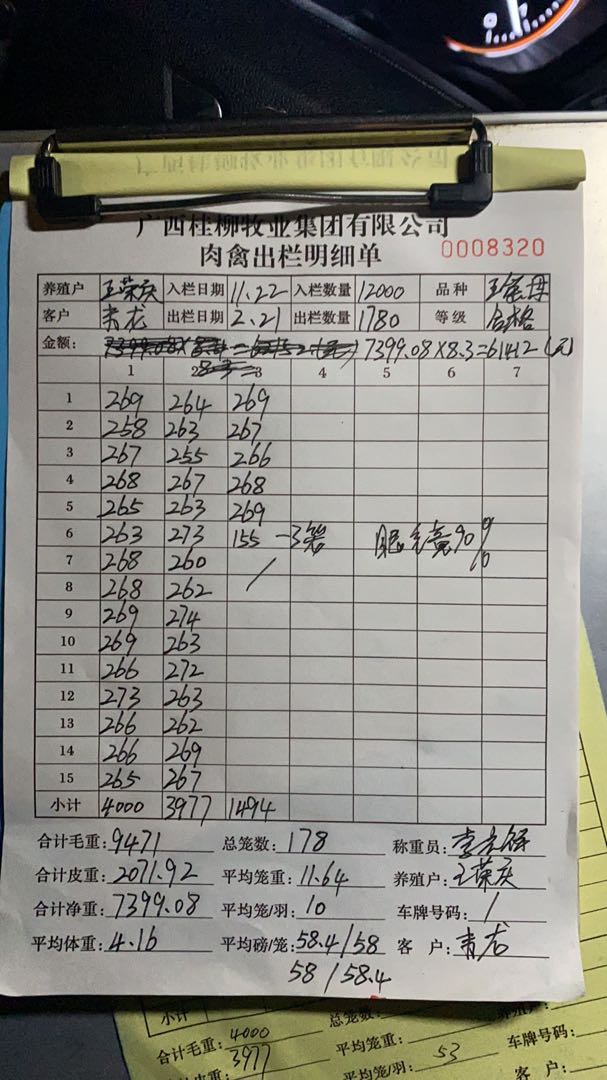 广西桂柳牧业集团有限公司
肉禽出栏明细单 0008320
养殖户 王荣庆 入栏日期 11.22 入栏数量 12000 品种
客户 青龙 出栏日期 2.21 出栏数量 1780 等级 合格
金额: 7399.08×8.3=61412(元)
1 2 3 4 5 6 7
1 269 264 269
2 258 263 267
3 267 255 266
4 268 267 268
5 265 263 269
6 263 273 155 -3笼 毛 90%
7 268 260 /
8 268 262
9 269 274
10 269 263
11 266 272
12 273 263
13 266 262
14 266 269
15 265 267
小计 4000 3977 1494
合计毛重: 9471 总笼数: 178 称重员:
合计皮重: 2071.92 平均笼重: 11.64 养殖户: 王荣庆
合计净重: 7399.08 平均笼/羽: 10 车牌号码: /
平均体重: 4.16 平均磅/笼: 58.4/58 客 户: 青龙
58/58.4
小计 4000 3977 总笼数:
合计毛重: 平均笼重: 车牌号码:
合计皮重: 平均笼/羽: 53 客 户: